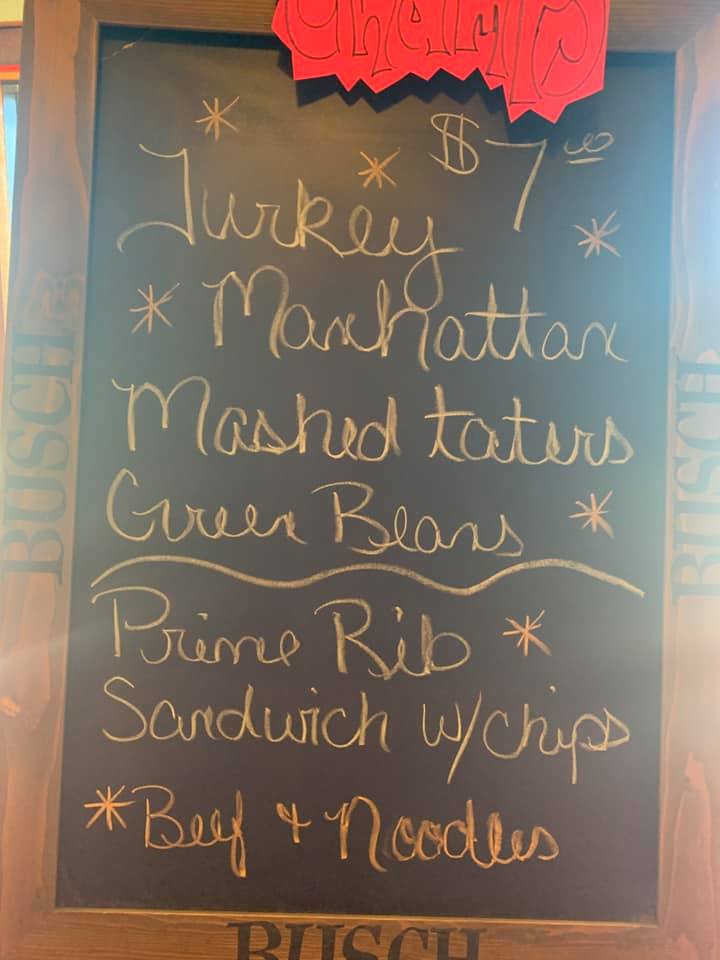 CHAMPS
$7.00
Turkey
Manhattan
Mashed taters
Green Beans
Prime Rib
Sandwich w/chips
Beef + Noodles
BUSCH
BUSCH
BUSCH